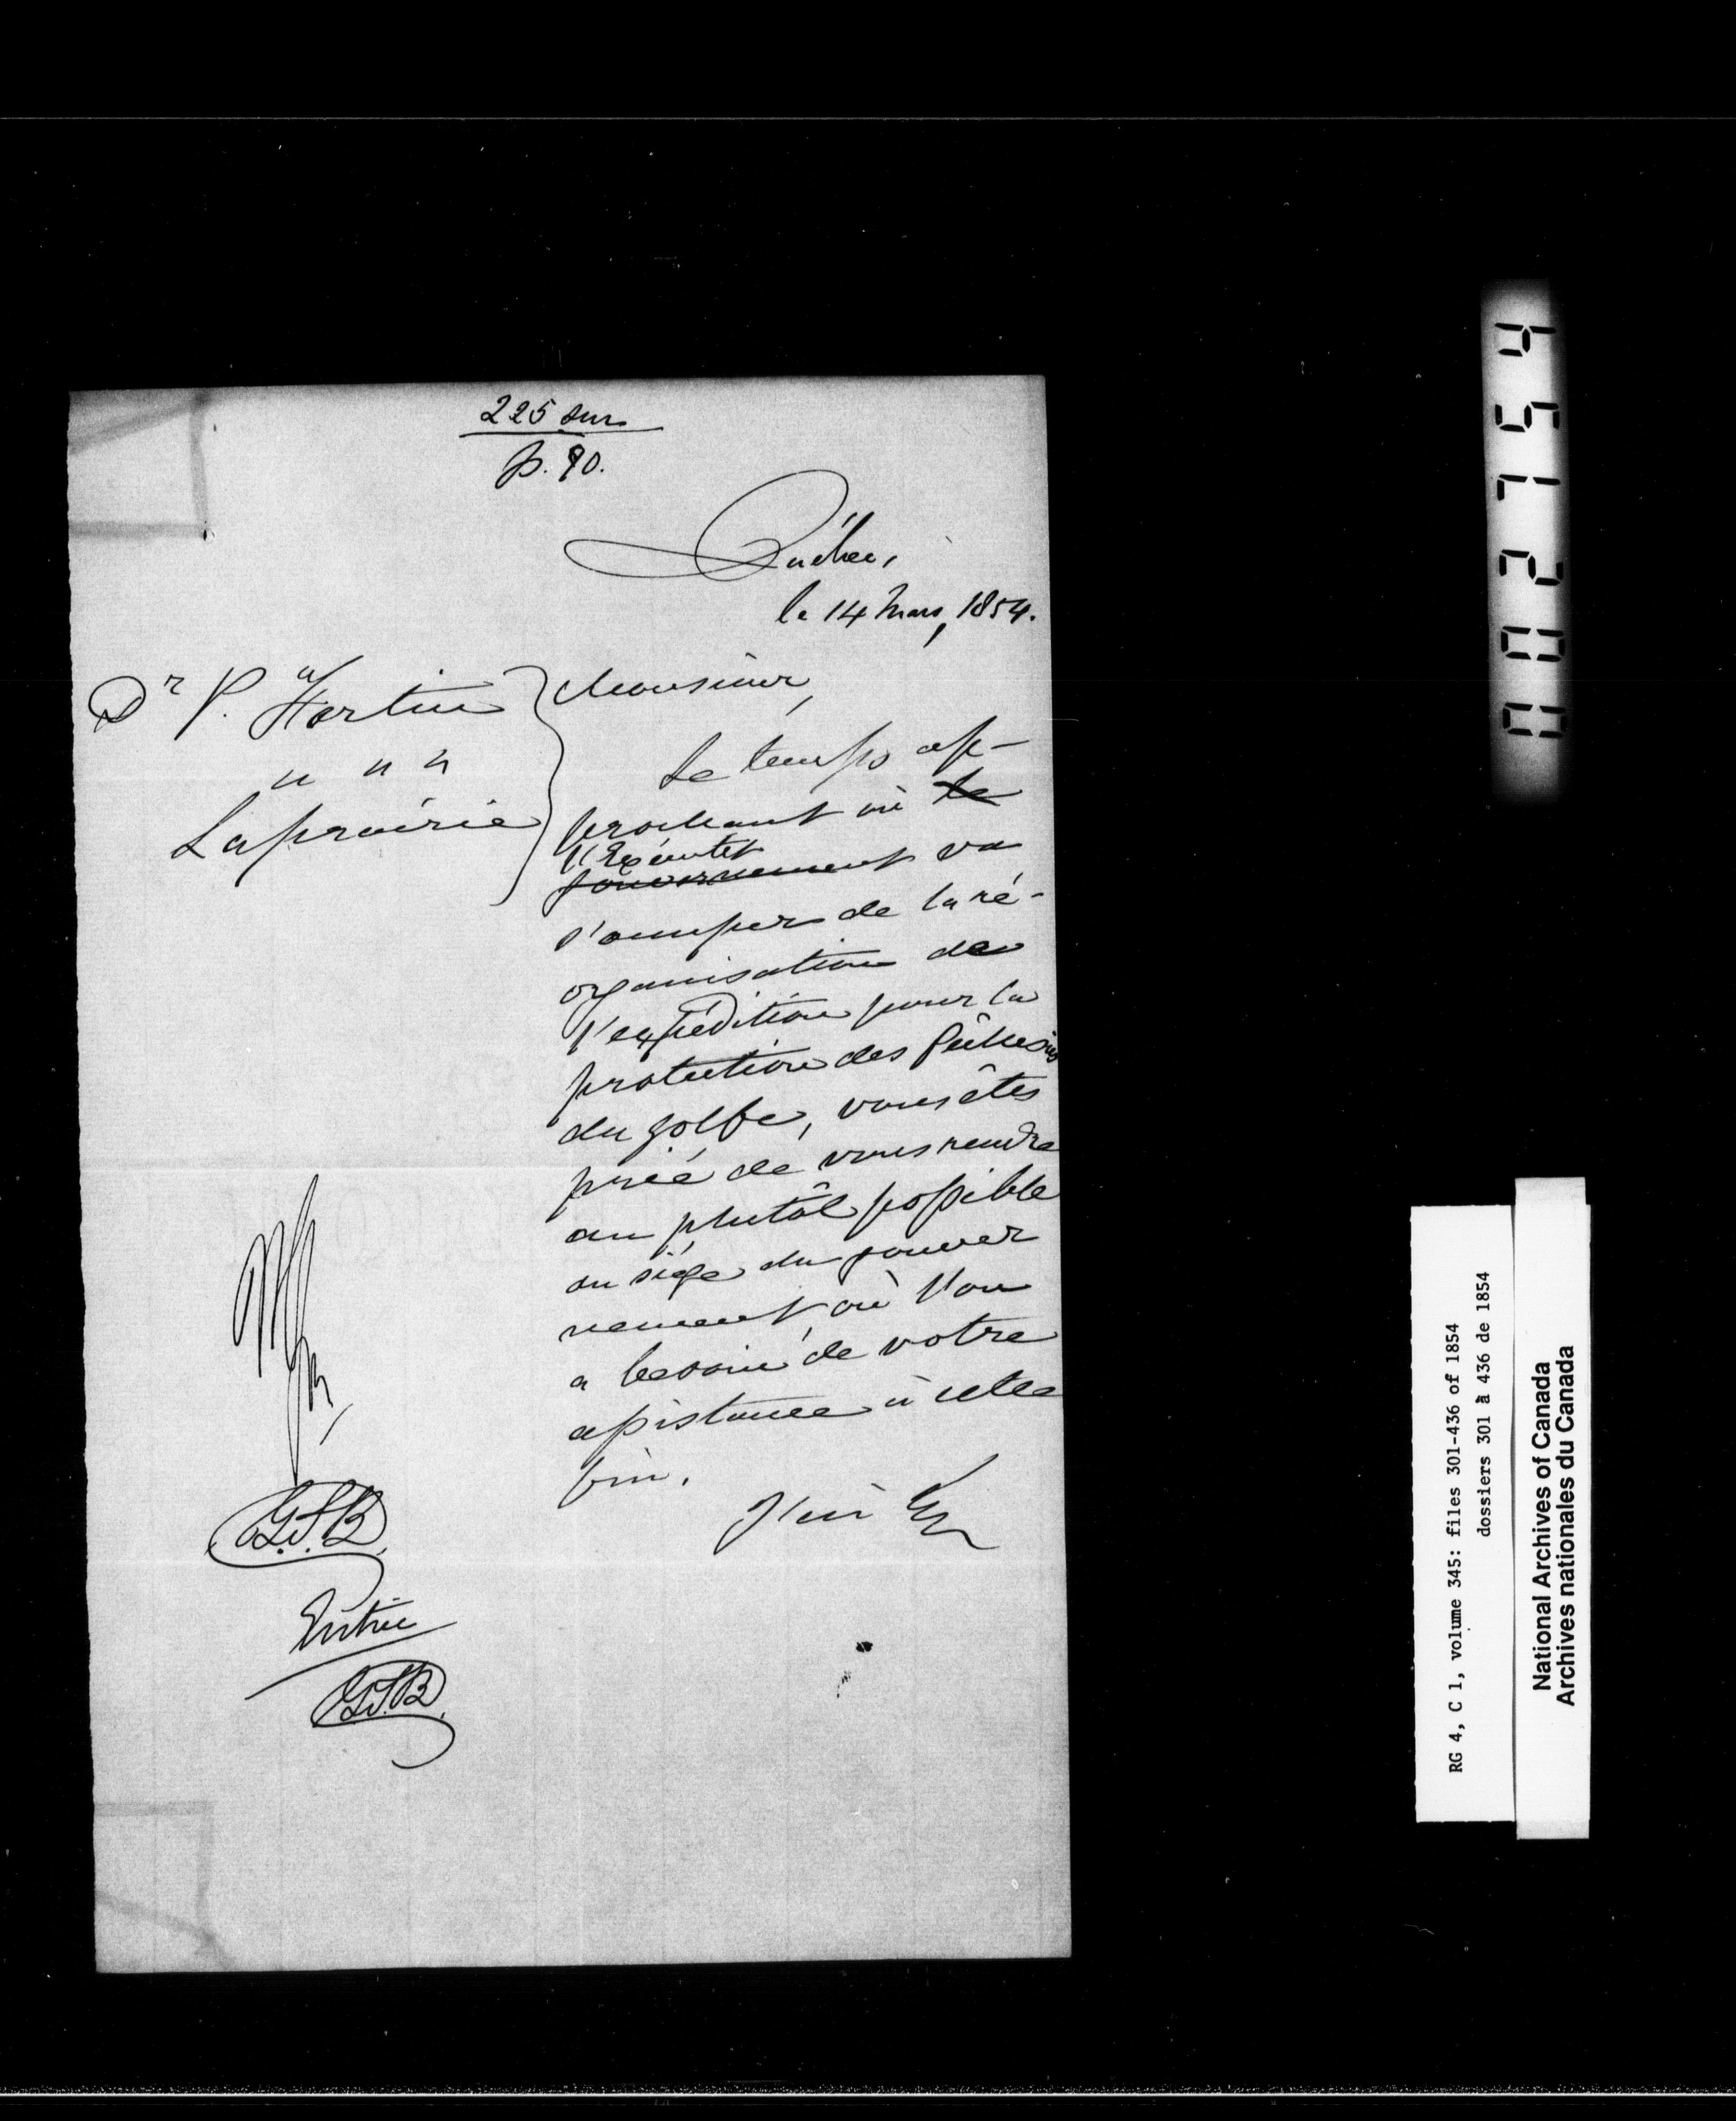 225 sur
p. 90.
Québec,
le 14 Mars, 1854.
Dr P. Fortin
" " "
Laprairie
Monsieur,
Le temps ap-
prochant où le
l'Exécutif
gouvernement va
s'occuper de la ré-
organisation de
l'expédition pour la
protection des Pêcheries
du golfe, vous êtes
prié de vous rendre
au plutôt possible
au siége du gouver
nement, où l'on
a besoin de votre
assistance à cette
fin.
J'ai &c
G.S.B.
Entrée
G.S.B.
002754
RG 4, C 1, volume 345: files 301-436 of 1854
dossiers 301 à 436 de 1854
National Archives of Canada
Archives nationales du Canada